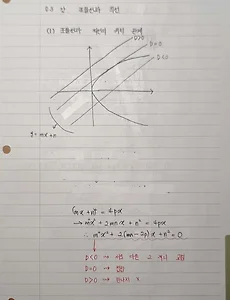 (1) 포물선과 직선의 위치 관계
D>0
D=0
D<0
y=mx+n
(mx+n)²=4px
→m²x²+2mnx+n²=4px
∴ m²x²+2(mn-2p)x+n²=0
D<0 → 서로 다른 2
D=0 → 접함
D>0 → 만나지 X